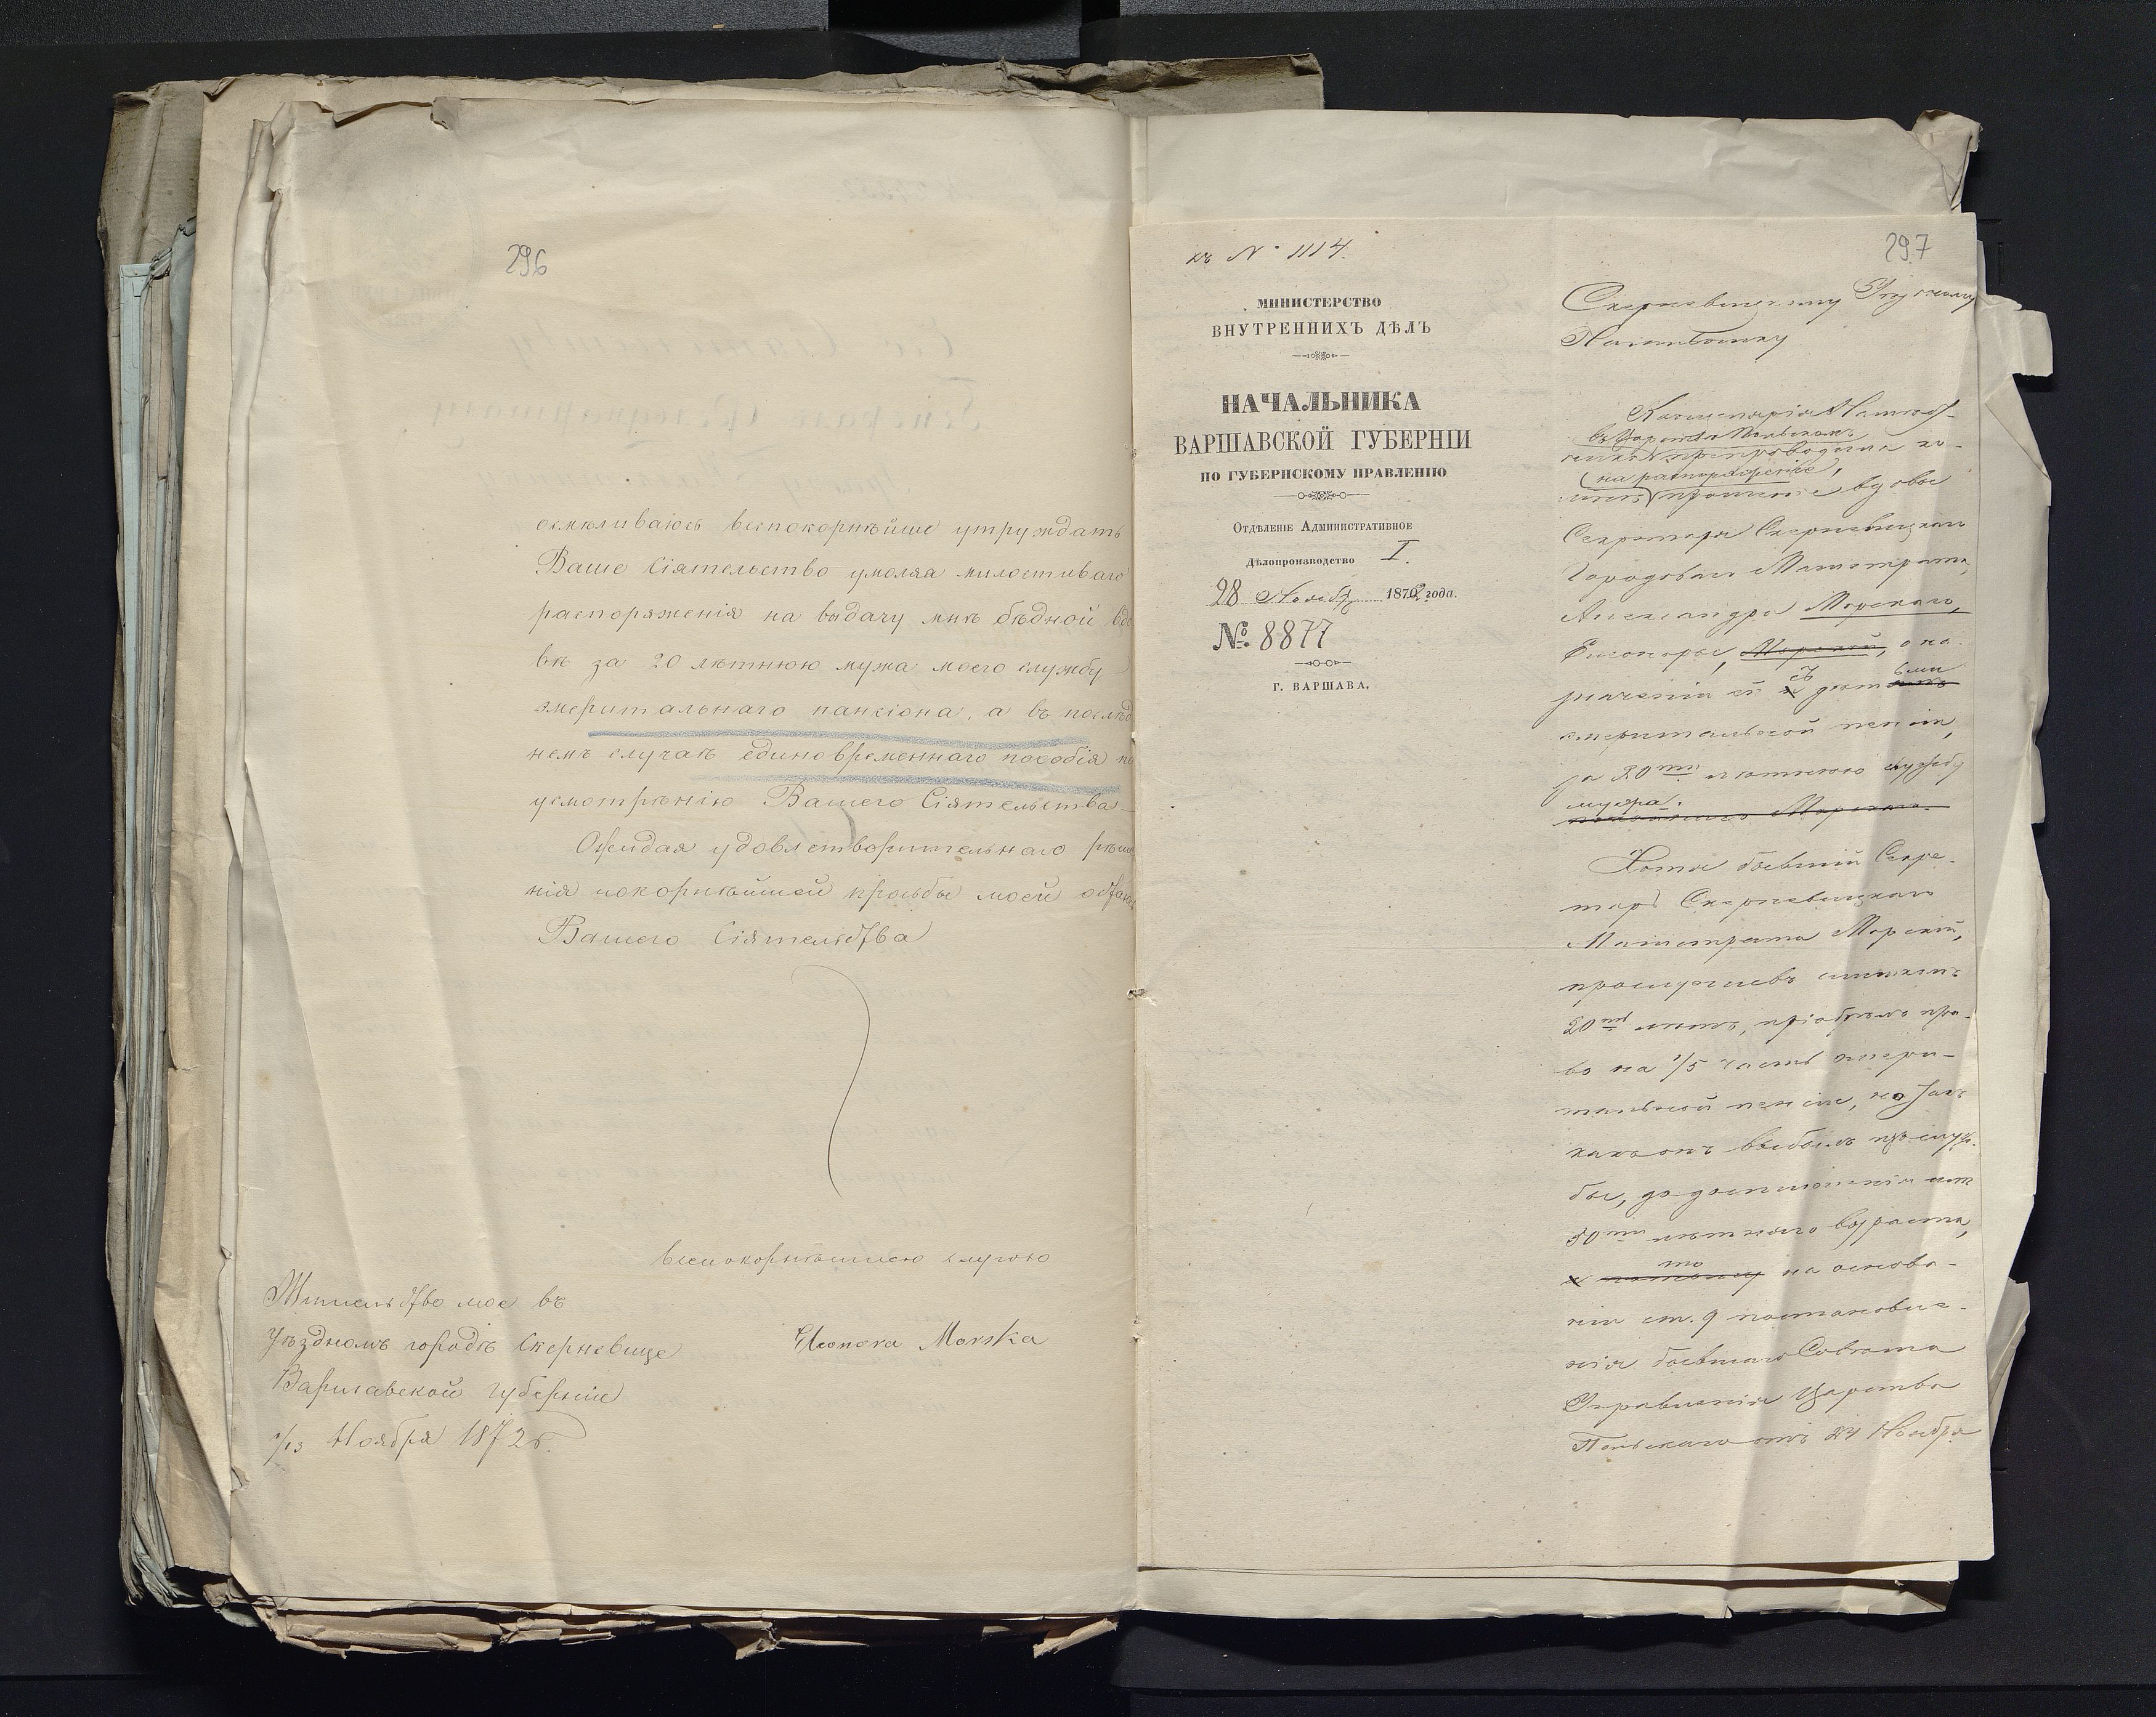 296
осмѣливаюсь всепокорнѣйше утруждать
Ваше Сіятельство умоляя милостиваго
распоряженія на выдачу мнѣ бѣдной вдо
вѣ за 20 лѣтнюю мужа моего службу
эмеритальнаго пансіона, а въ послѣд
немъ случаѣ единовременнаго пособія по
усмотрѣнію Вашего Сіятельства
Ожидая удовлетворительнаго рѣше
нія покорнѣйшей просьбы моей
Вашего Сіятельства
всепокорнѣйшею слугою
Eleonora Morska
Жительство мое въ
Уѣздномъ городѣ Скерневице
Варшавской губерніи
1/13 Ноября 1872 г.
къ № 1114.
297
МИНИСТЕРСТВО
ВНУТРЕННИХЪ ДѢЛЪ
НАЧАЛЬНИКА
ВАРШАВСКОЙ ГУБЕРНІИ
ПО ГУБЕРНСКОМУ ПРАВЛЕНІЮ
Отдѣленіе Административное
Дѣлопроизводство I.
28 Ноября 1872 года.
№ 8877
Г. ВАРШАВА.
Скерневицкому Уѣздному
Начальнику
Канцелярія Намѣст-
въ Царствѣ Польскомъ
ника препроводила ко
на распоряженіе,
мнѣ прошеніе вдовы
Секретаря Скерневицкаго
Городоваго Магистрата,
Александра Морскаго,
Елеоноры, Морской, о на
значеніи ей съ дѣтьми
эмеритальной пенсіи,
за 20ти лѣтнюю службу
мужа.
Морскаго.
Хотя бывшій Секре-
тарь Скерневицкаго
Магистрата Морскій,
прослуживъ слишкомъ
20ть лѣтъ, пріобрѣлъ пра-
во на 1/5 часть эмери-
тальной пенсіи, но такъ
какъ онъ выбылъ изъ служ-
бы, до достиженія имъ
50ти лѣтняго возраста,
то
на основа-
ніи ст. 9 постановле-
нія бывшаго Совѣта
Управленія Царства
Польскаго отъ 24 Ноября